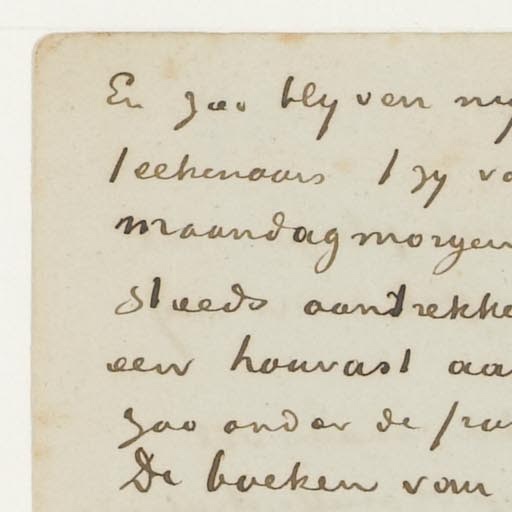 En zoo blyven my
teekenaars 't zy va
maandagmorgen
steeds aantrekke
een houvast aa
zoo onder de fra
De boeken van